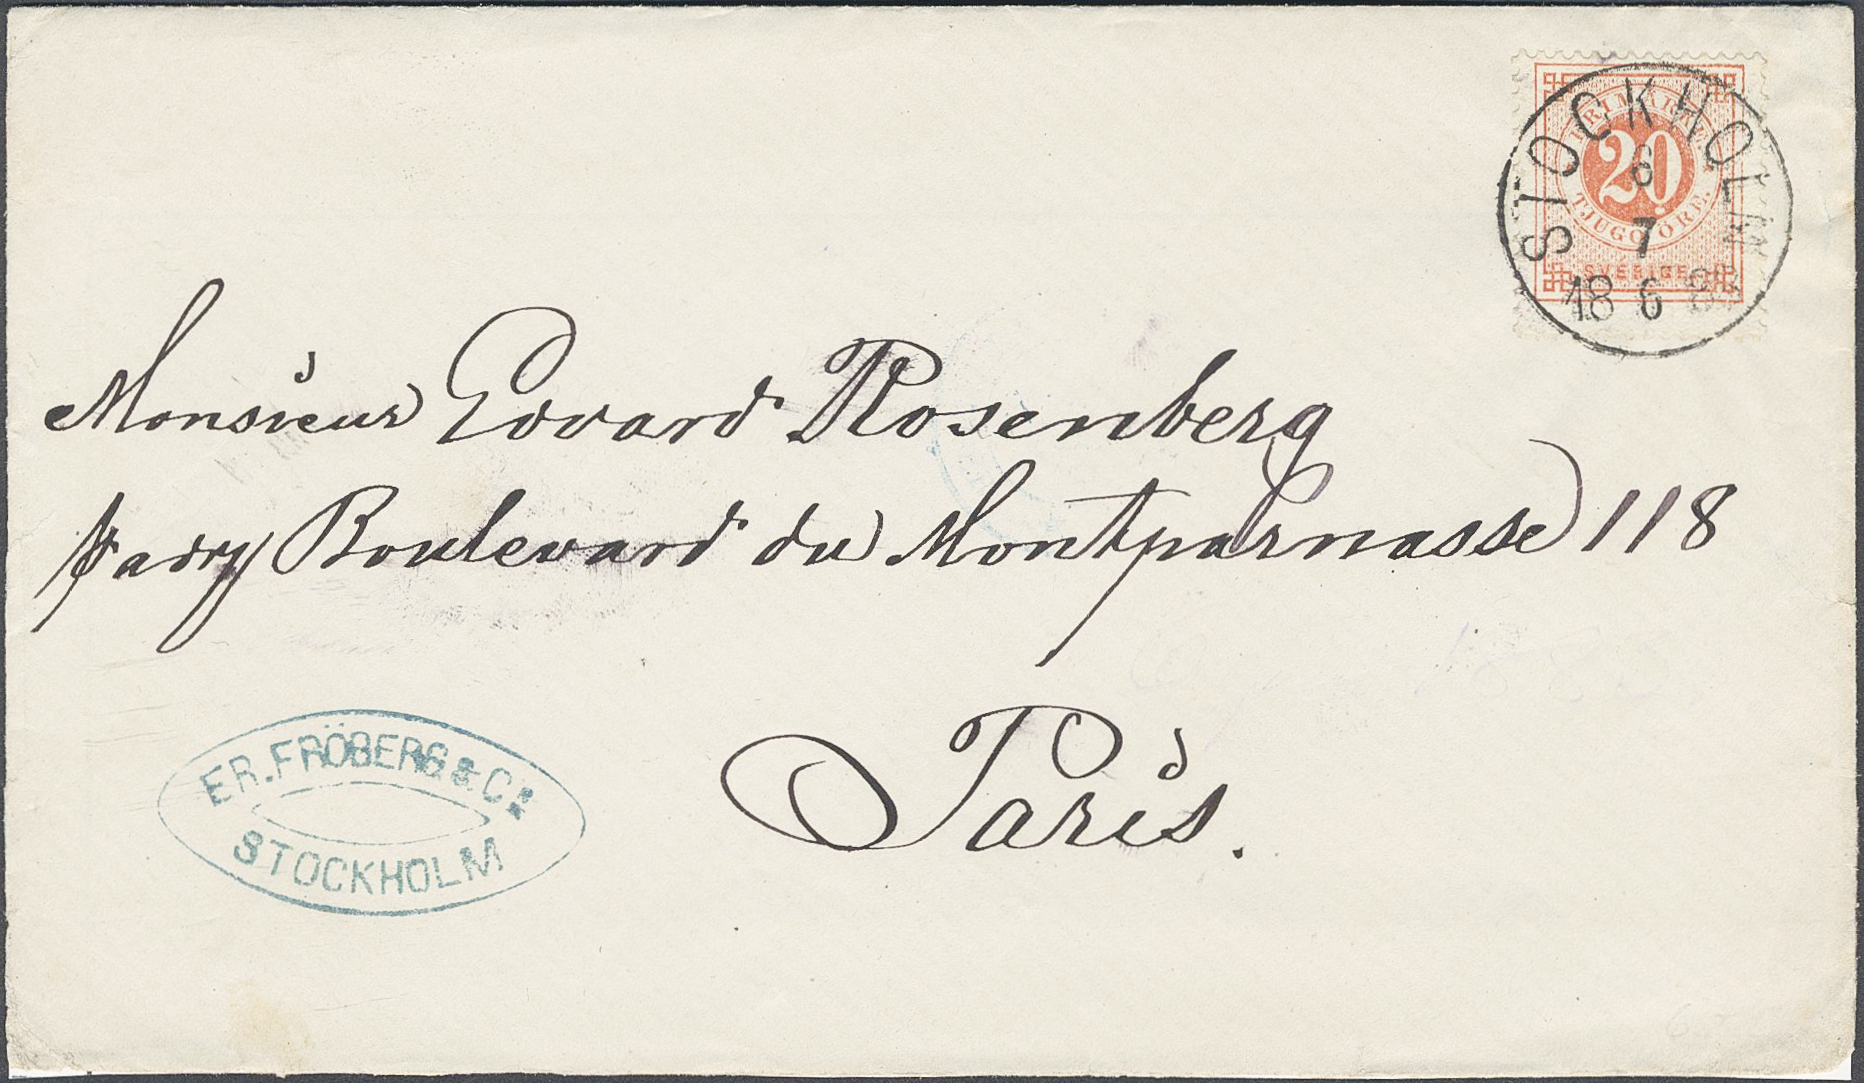 FRIMÄRKE
20
TJUGO ÖRE.
SVERIGE
STOCKHOLM
6
7
18 6
Monsieur Edvard Rosenberg
Boulevard du Montparnasse 118
Paris.
ER. FRÖBERG & Co
STOCKHOLM